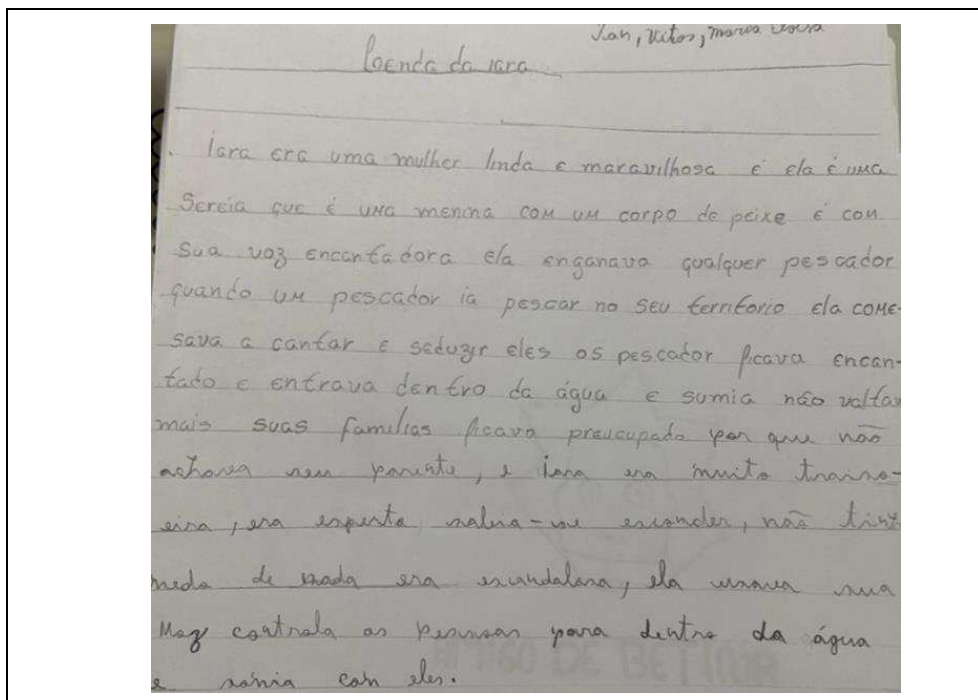 Jan, Vitor, maria
Loenda da iara
Iara era uma mulher linda e maravilhosa é ela é uma
Sereia que é uma menina com um corpo de peixe é com
sua voz encantadora ela enganava qualquer pescador
quando um pescador ia pescar no seu territorio ela come-
sava a cantar e seduzir eles os pescador ficava encan-
tado e entrava dentro da água e sumia não voltav
mais suas familias ficava preucupado por que não
achava seu parente, e iara era muito traiso-
eira, era esperta sabia-se esconder, não tinh
medo de nada era escandalosa, ela usava sua
Moz controla as pessoas para dentro da água
e somia com eles.